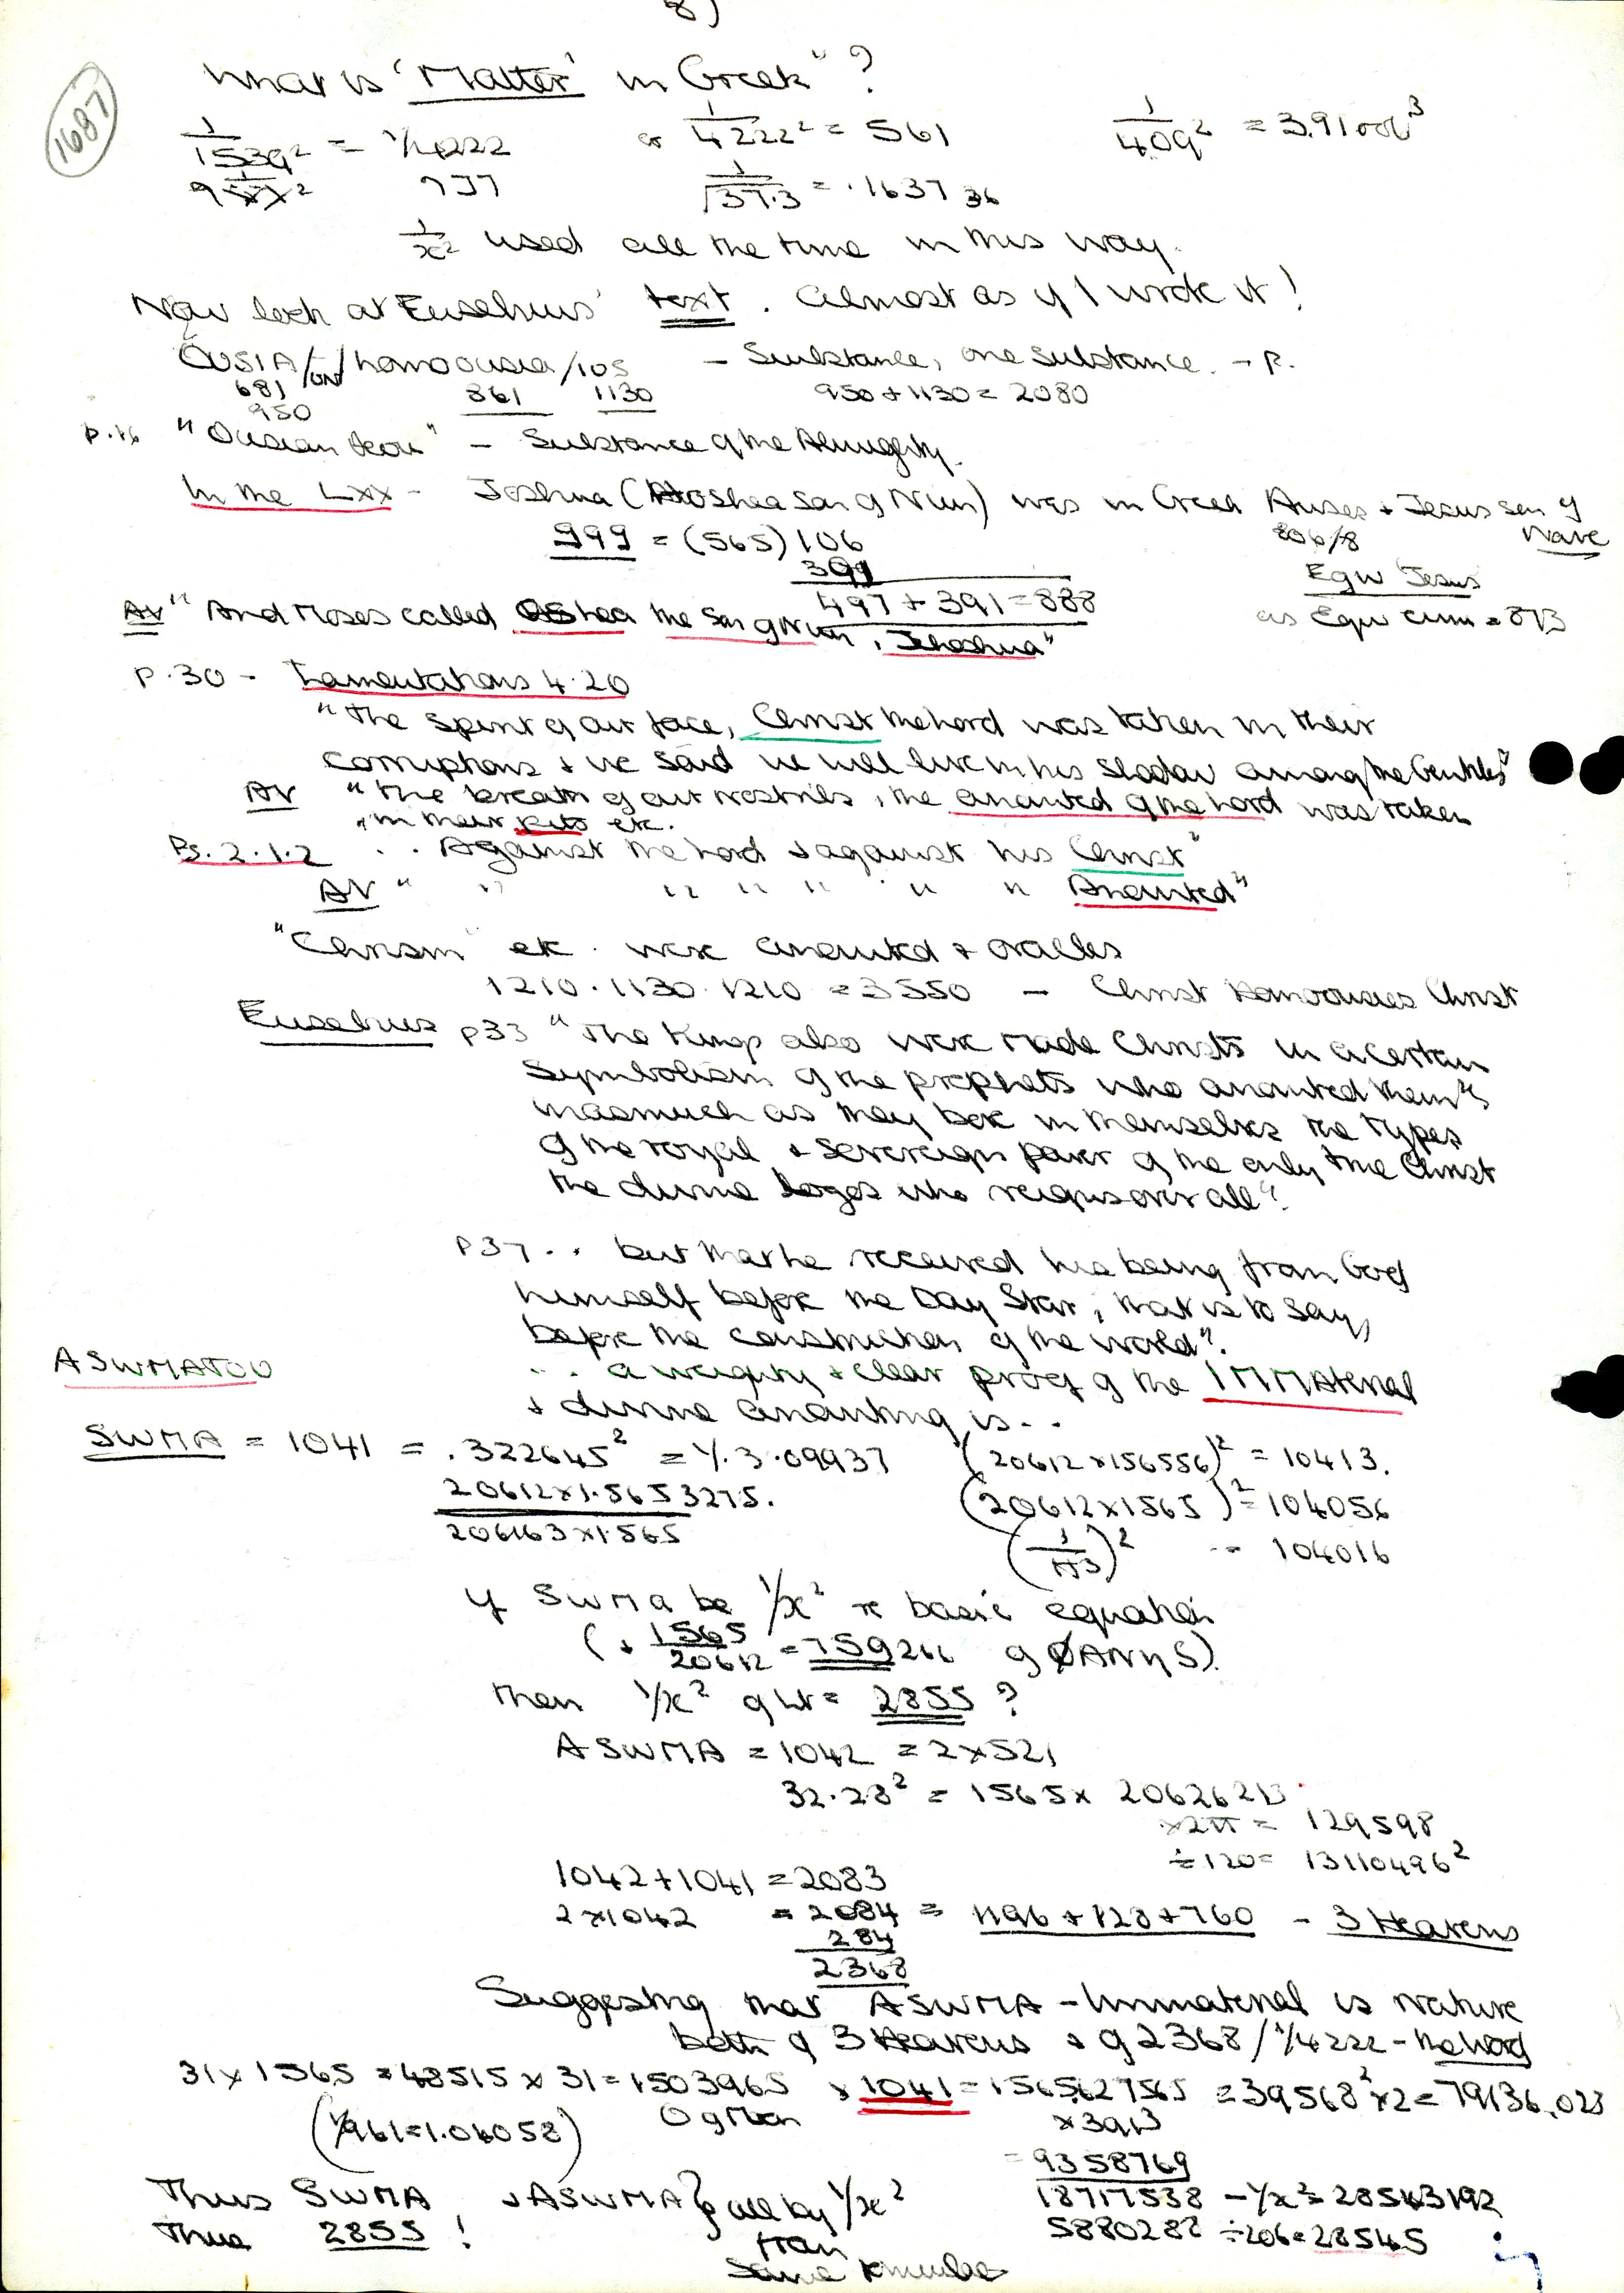 8)
1687
What is 'Matter' in Greek" ?
1/1539² = 1/4222 or 1/4222² = 561 1/409² = 3.91006³
937 1/√37.3 = .163736
1/x² used all the time in this way.
Now look at Eusebius' text. Almost as if I wrote it!
OUSIA/ON/homoousia/ios - Substance, one substance. - P.
681 861 1130 950 + 1130 = 2080
950
P.16 "Ousian theou" - Substance of the Almighty.
In the LXX - Joshua (Hoshea son of Nun) was in Greek Auses + Jesus son of Nave
999 = (565) 106 806/8
391 Egw Jesus
497 + 391 = 888 as Egw eimi = 873
AV "And Moses called Oshea the son of Nun, Jehoshua"
P.30 - Lamentations 4.20
"The spirit of our face, Christ the Lord was taken in their
corruptions + we said we will live in his shadow among the Gentiles"
AV "The breath of our nostrils, the anointed of the Lord was taken
in their pits etc.
Ps. 2.1.2 . . Against the Lord + against his Christ"
AV " " " " " " " Anointed"
"Chrism" etc. were anointed + oracles
1210.1130.1210 = 3550 - Christ Homoousios Christ
Eusebius p33 "The Kings also were made Christs in a certain
Symbolism of the prophets who anointed them"
inasmuch as they bore in themselves the types
of the royal + sovereign power of the only true Christ
the divine Logos who reigns over all".
P37 . . but that he received his being from God
himself before the Day Star, that is to say,
before the construction of the world".
ASWMATOU . . a weighty + clear proof of the IMMAterial
+ divine anointing is . .
SWMA = 1041 = .322645² = 1/.3.09937 (20612 x 156556)² = 10413.
20612 x 1.5653275. (20612 x 1565)² = 104056
206163 x 1.565 (1/π3)² -- 104016
If SWMA be 1/x² + basic equation
(+ 1565/20612 = 759266 of ØANHS).
then 1/x² of W = 2855 ?
ASWMA = 1042 = 2 x 521
32.28² = 1565 x 20626213
x 2π = 129598
÷ 120 = 13110496²
1042 + 1041 = 2083
2 x 1042 = 2084 = 1196 + 128 + 760 - 3 Heavens
284
2368
Suggesting that ASWMA - Immaterial is nature
both of 3 Heavens + of 2368 / 1/4222 - the Word
31 x 1565 = 48515 x 31 = 1503965 x 1041 = 1565627565 = 39568² x 2 = 79136.023
(1/961 = 1.04058) x 3913
= 9358769
Thus SWMA + ASWMA } all by 1/x² 18717538 - 1/x² = 28543192
Thus 2855 ! from 5880288 ÷ 206 = 28545
same formulae